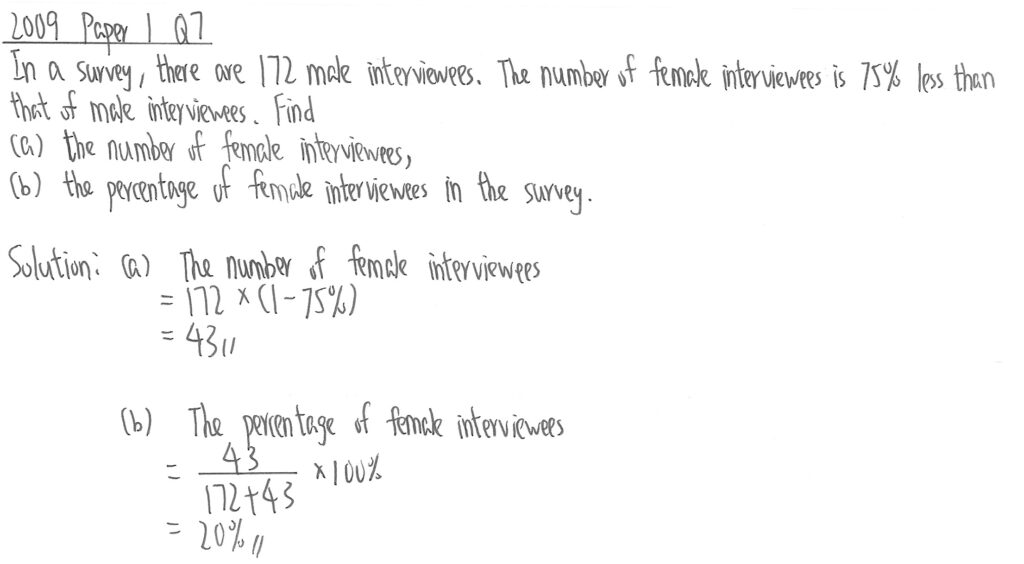 2009 Paper 1 Q7
In a survey, there are 172 male interviewees. The number of female interviewees is 75% less than
that of male interviewees. Find
(a) the number of female interviewees,
(b) the percentage of female interviewees in the survey.
Solution: (a) The number of female interviewees
= 172 × (1 - 75%)
= 43//
(b) The percentage of female interviewees
= 43 / (172+43) × 100%
= 20% //